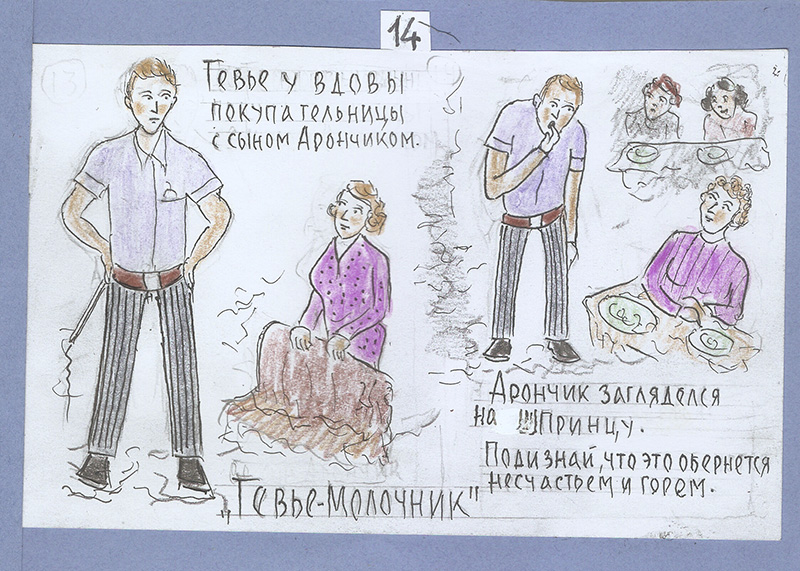 14
13
Тевье у вдовы
покупательницы
с сыном Арончиком.
Арончик загляделся
на Шпринцу.
Поди знай, что это обернется
несчастьем и горем.
„Тевье-молочник"